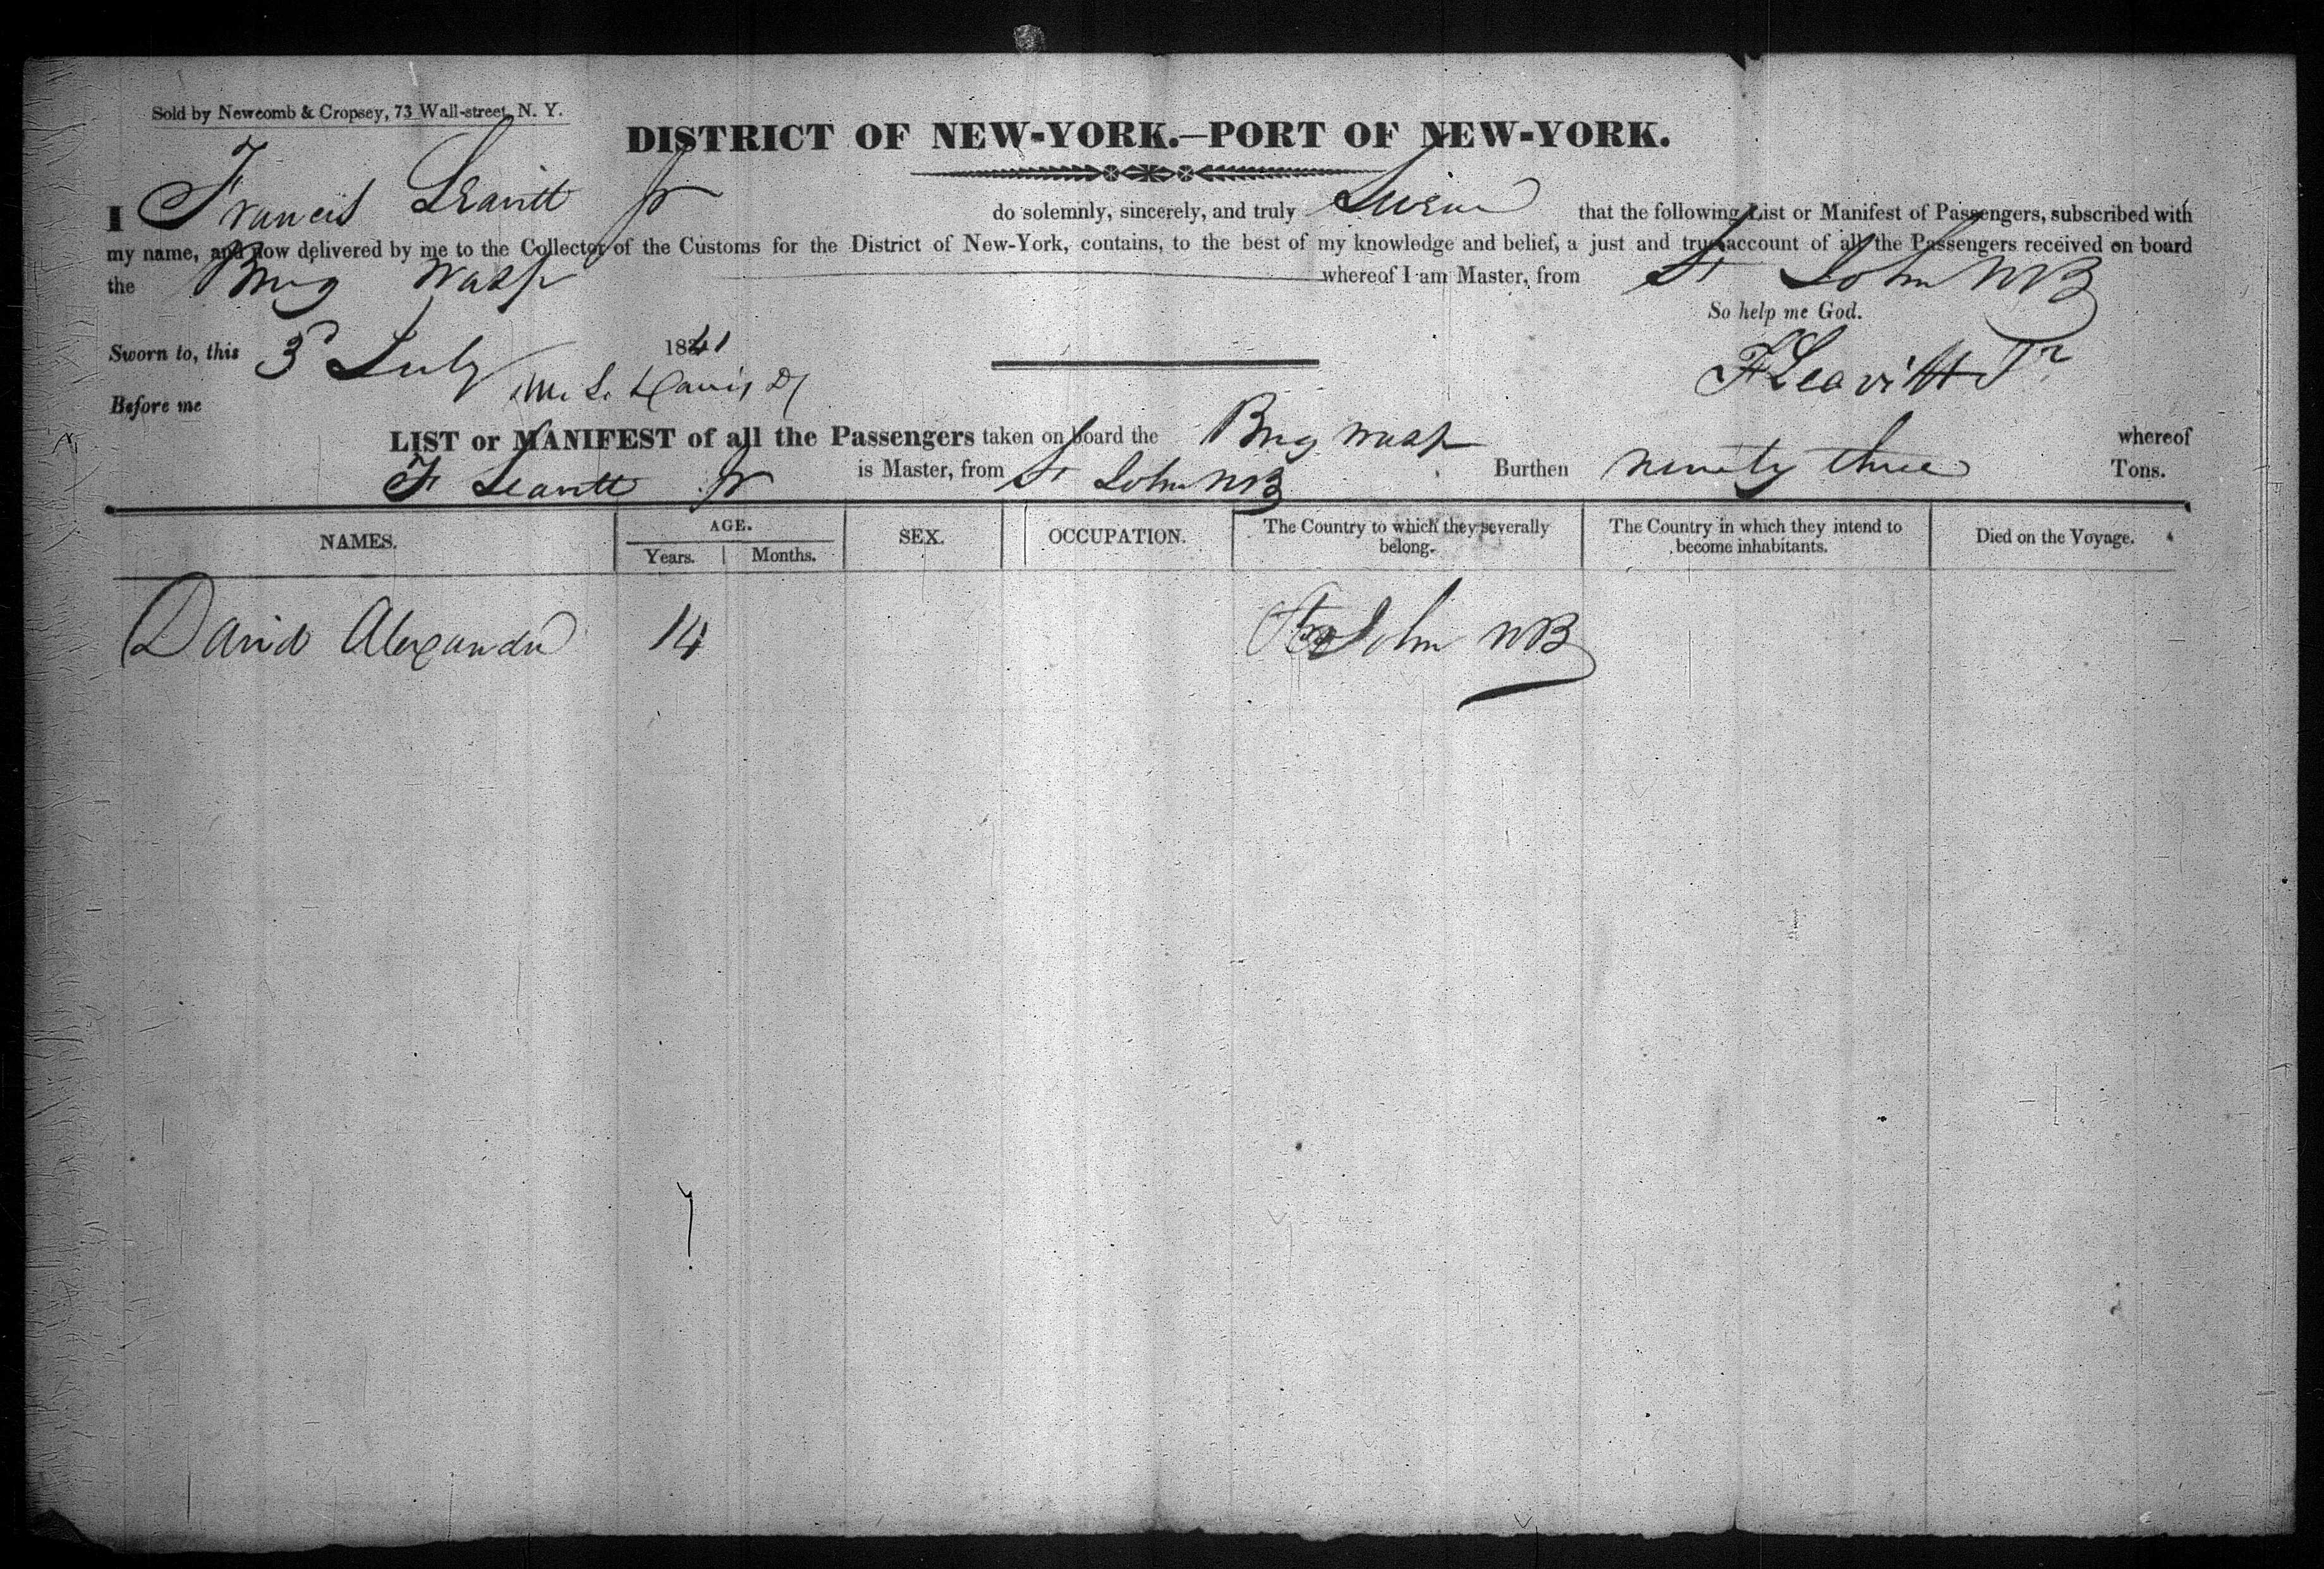 Sold by Newcomb & Cropsey, 73 Wall-street, N. Y.
DISTRICT OF NEW-YORK.—PORT OF NEW-YORK.
I Francis Leavitt Jr do solemnly, sincerely, and truly Swear that the following List or Manifest of Passengers, subscribed with
my name, and now delivered by me to the Collector of the Customs for the District of New-York, contains, to the best of my knowledge and belief, a just and true account of all the Passengers received on board
the Brig Wasp whereof I am Master, from St John NB
So help me God.
Sworn to, this 3d July 1841
F Leavitt Jr
Before me M. L. Davis
LIST or MANIFEST of all the Passengers taken on board the Brig Wasp whereof
F Leavitt Jr is Master, from St John NB Burthen ninety three Tons.
NAMES. AGE. SEX. OCCUPATION. The Country to which they severally belong. The Country in which they intend to become inhabitants. Died on the Voyage.
Years. Months.
David Alexander 14 John NB